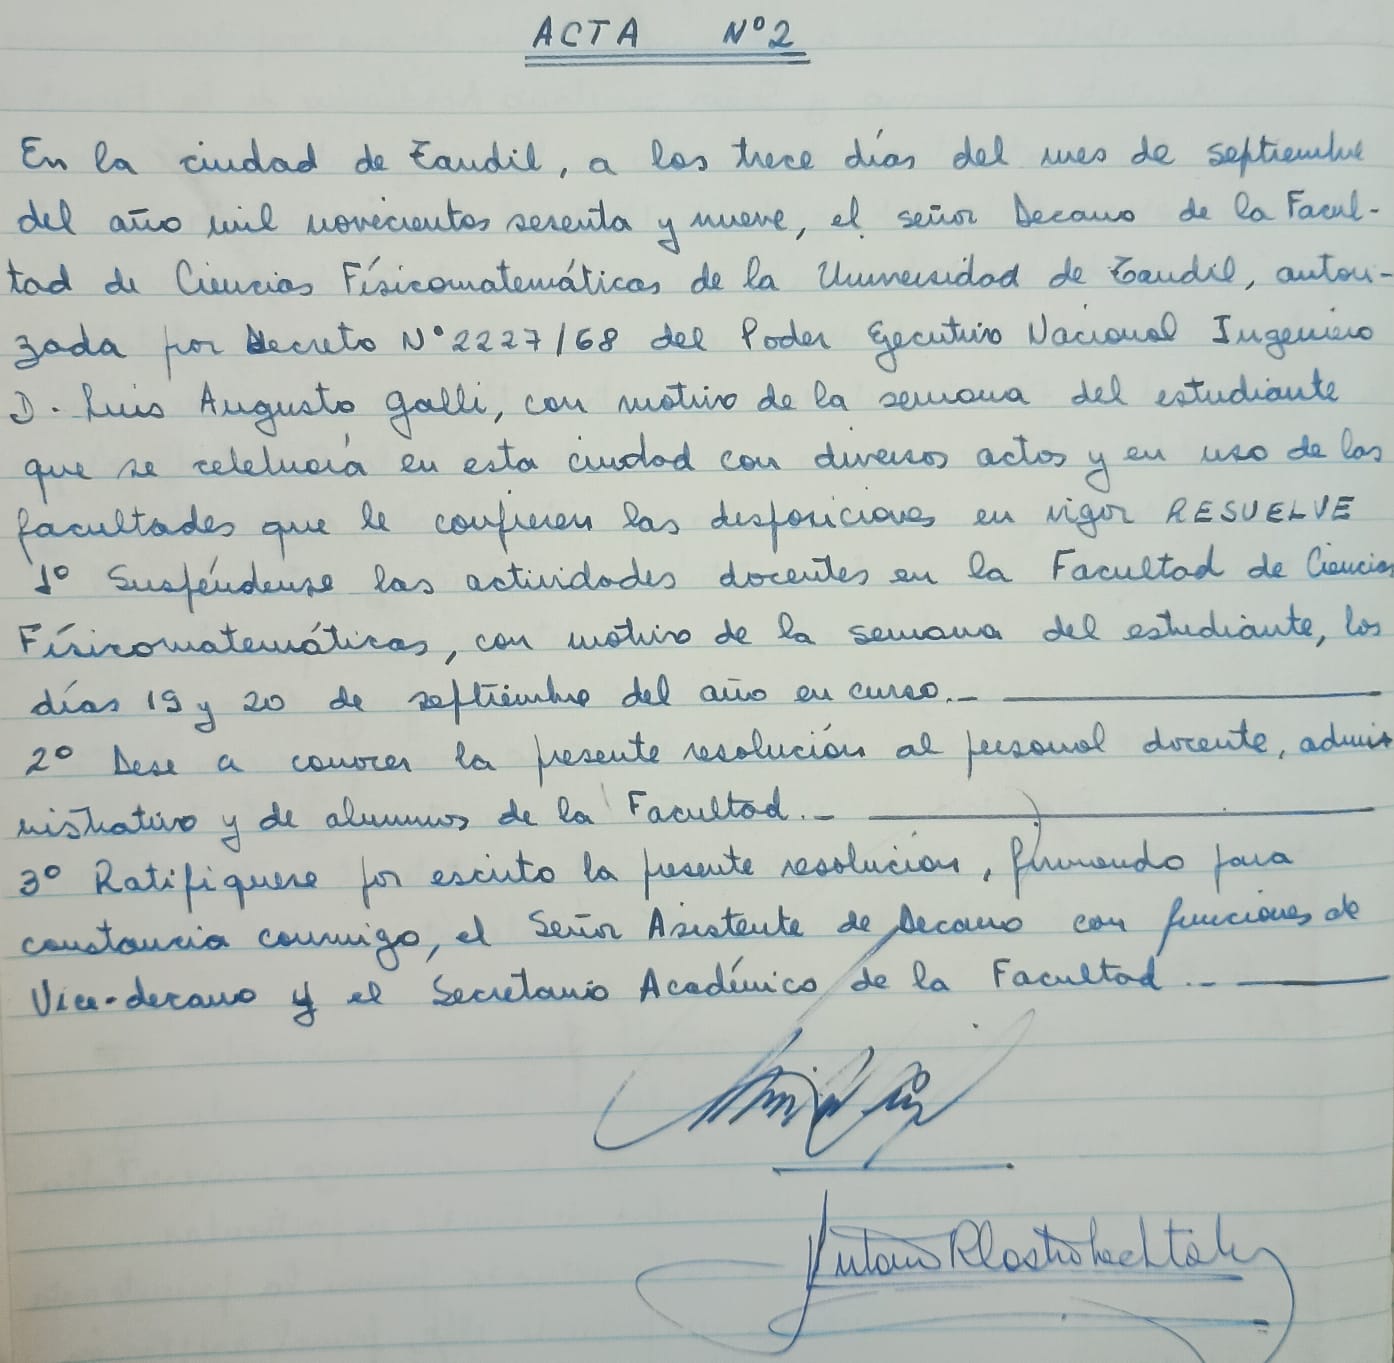 ACTA Nº2
En la ciudad de Tandil, a los trece días del mes de septiembre
del año mil novecientos sesenta y nueve, el señor Decano de la Facul-
tad de Ciencias Físicomatemáticas de la Universidad de Tandil, autori-
zada por Decreto Nº 2227/68 del Poder Ejecutivo Nacional Ingeniero
D. Luis Augusto Galli, con motivo de la semana del estudiante
que se celebrará en esta ciudad con diversos actos y en uso de las
facultades que le confieren las disposiciones en vigor RESUELVE
1º Suspéndense las actividades docentes en la Facultad de Ciencias
Físicomatemáticas, con motivo de la semana del estudiante, los
días 19 y 20 de septiembre del año en curso.-
2º Dese a conocer la presente resolución al personal docente, admi-
nistrativo y de alumnos de la Facultad.-
3º Ratifiquese por escrito la presente resolución, firmando para
constancia conmigo, el Señor Asistente de Decano con funciones de
Vice-decano y el Secretario Académico de la Facultad.-